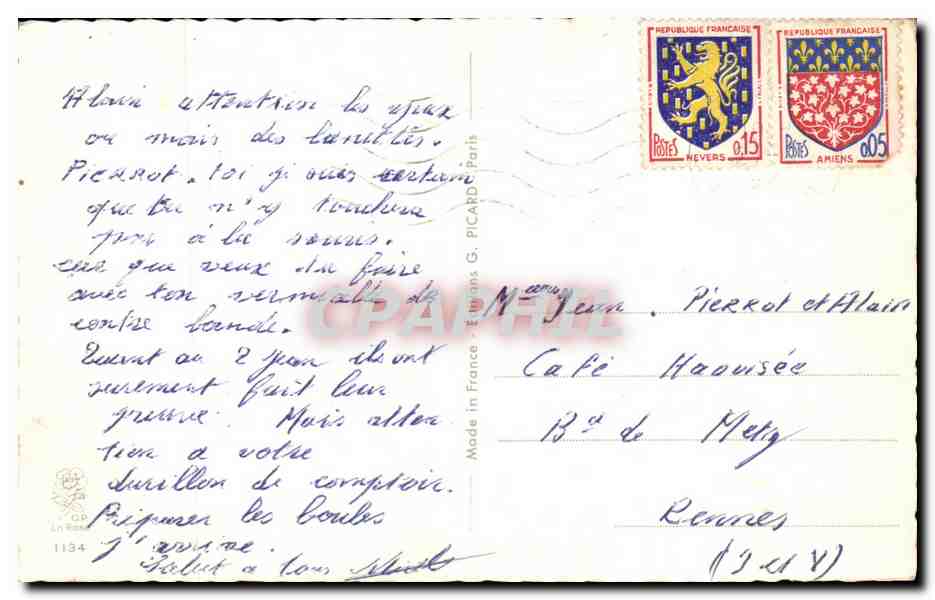 Alain attention les yeux
au mois des lunettes.
Pierrot. toi je suis certain
que tu n'y touchera
pas à la souris.
car que veux tu faire
avec ton vermicelle de
contre bande.
Quant au 2 jean ils ont
surement fait leur
preuve. Mais atten
tion a votre
durillon de comptoir.
Préparer les boules
j'arrive.
Salut a tous
La Rose
G.P
1134
Made in France - Editions G. PICARD - Paris
REPUBLIQUE FRANÇAISE
POSTES
0,15
NEVERS
REPUBLIQUE FRANÇAISE
POSTES
0,05
AMIENS
Jean. Pierrot et Alain
Café
Bd de Metz
Rennes
(I et V)
CPAPHIL